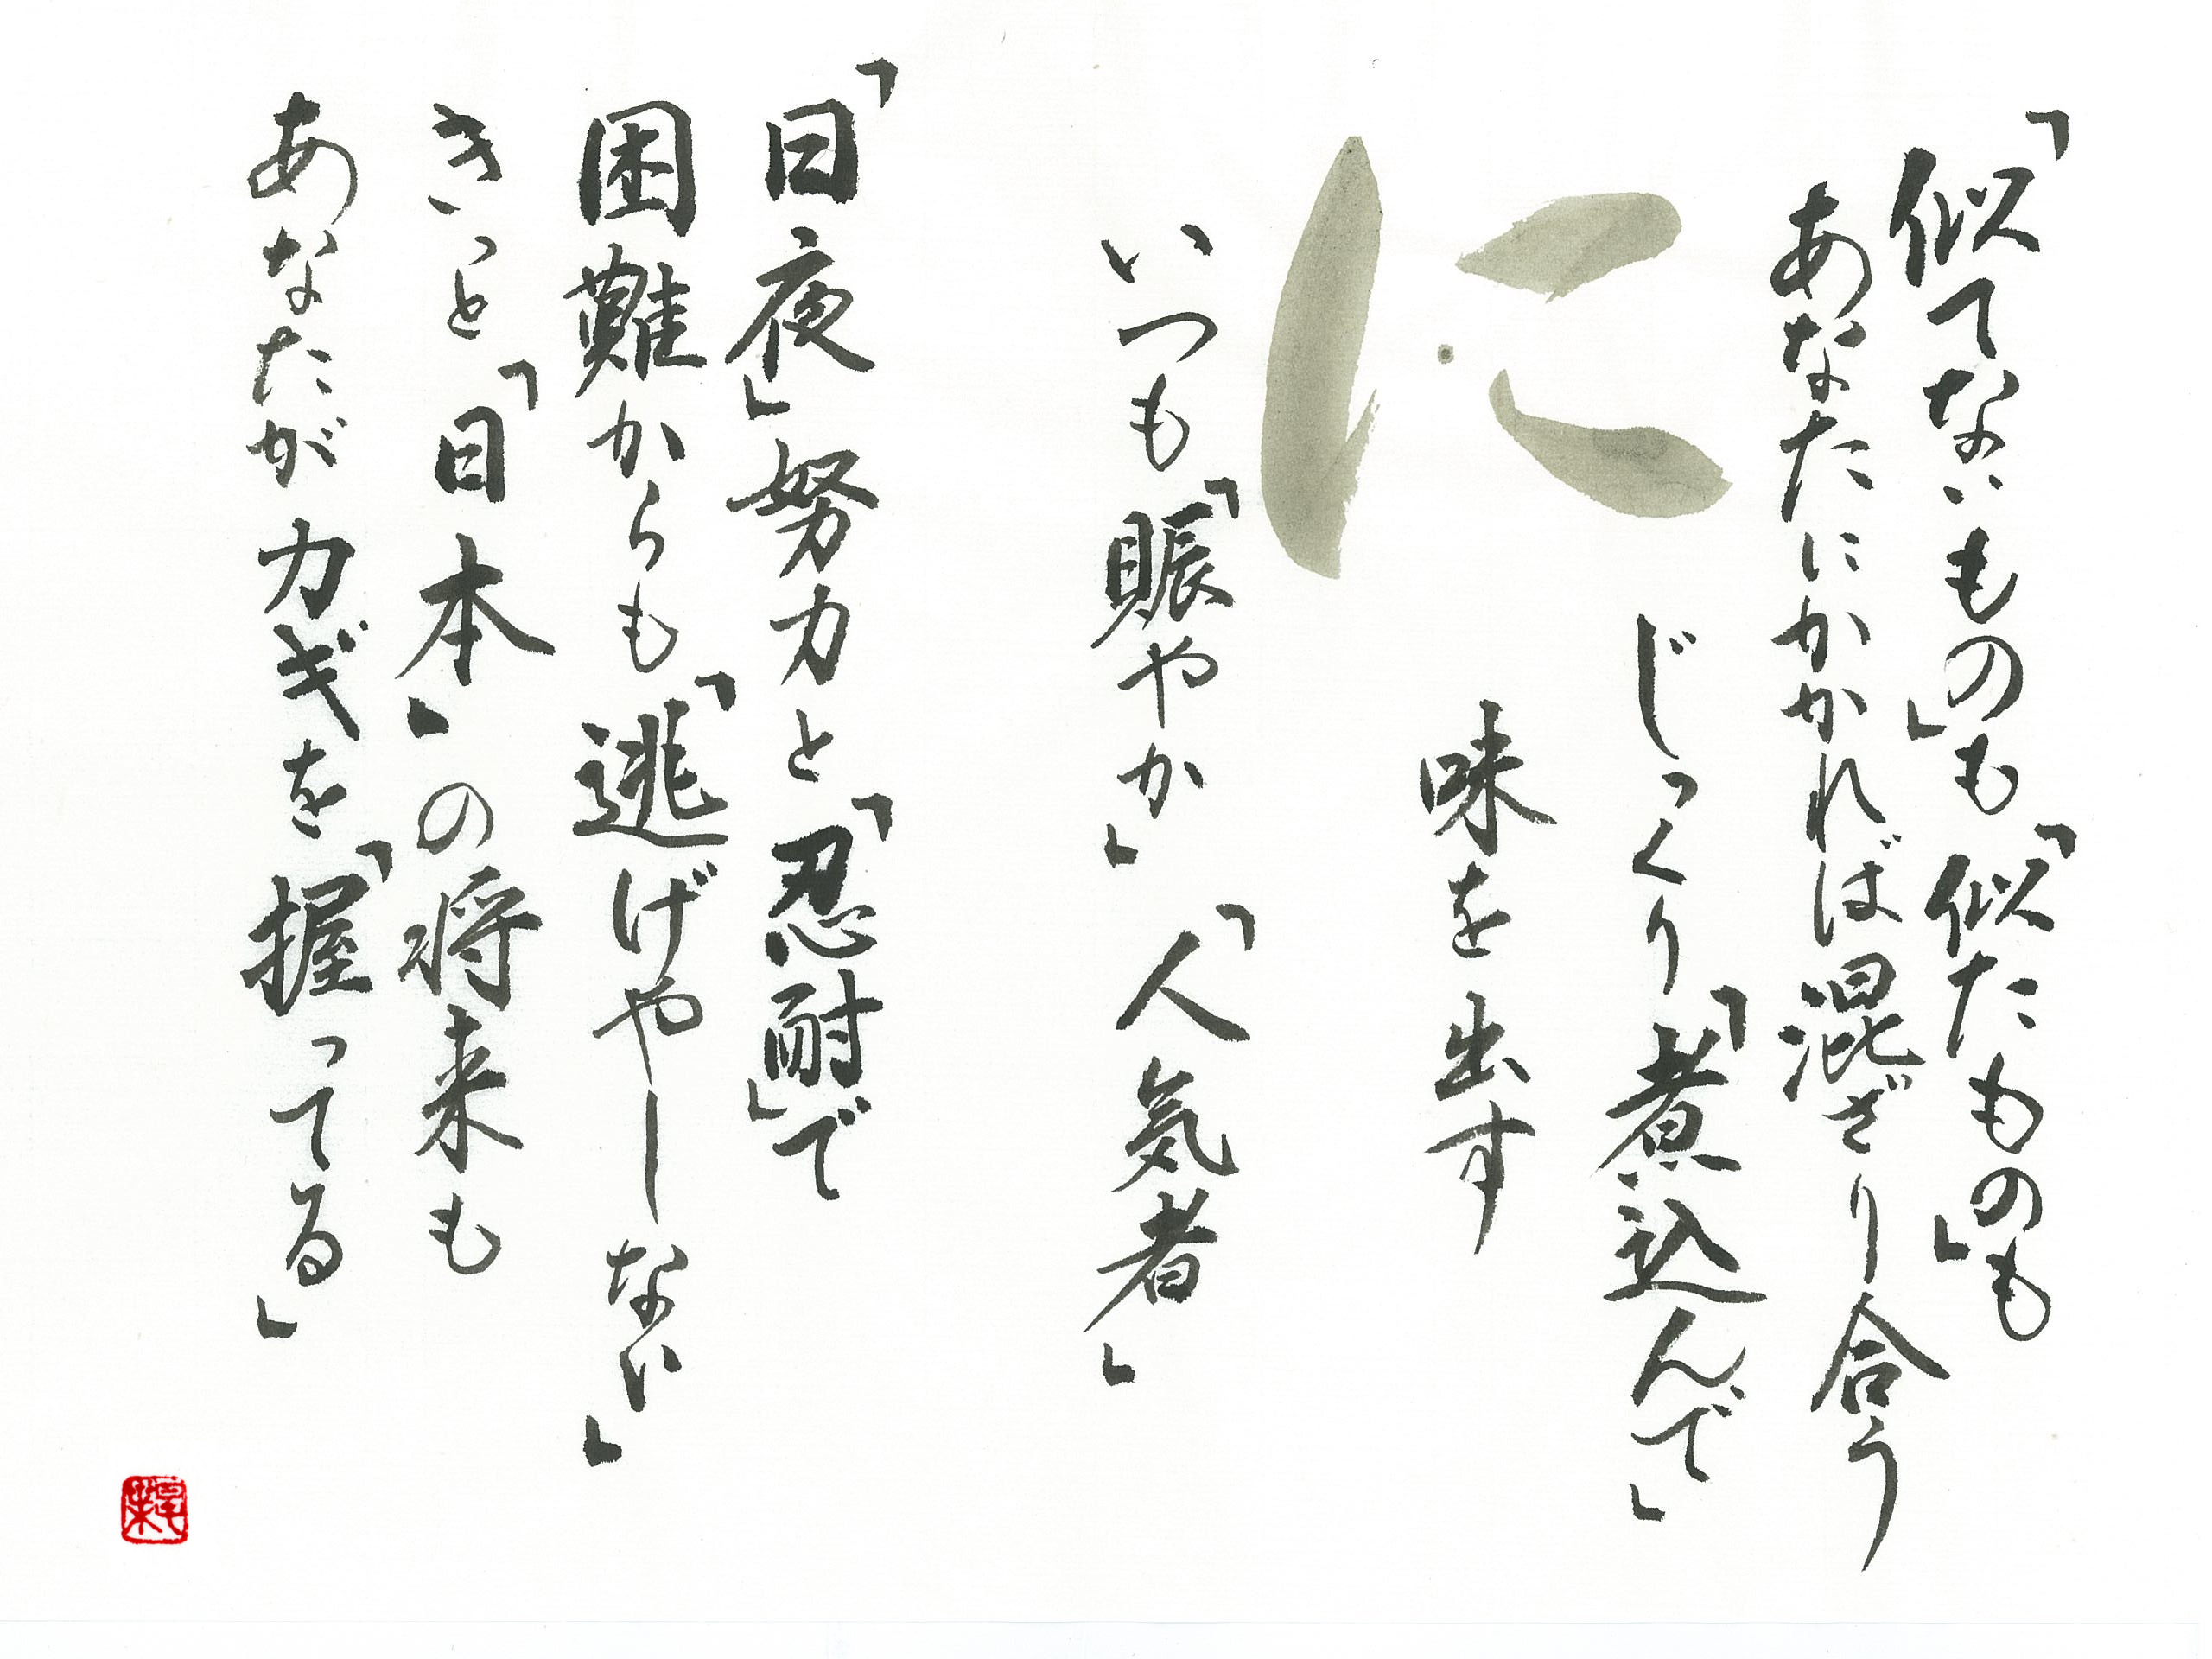 「似てないもの」も「似たもの」も
あなたにかかれば混ざり合う
じっくり「煮込んで」
味を出す
に
いつも「賑やか」「人気者」
「日夜」努力と「忍耐」で
困難からも「逃げやしない」
きっと「日本」の将来も
あなたがカギを「握ってる」